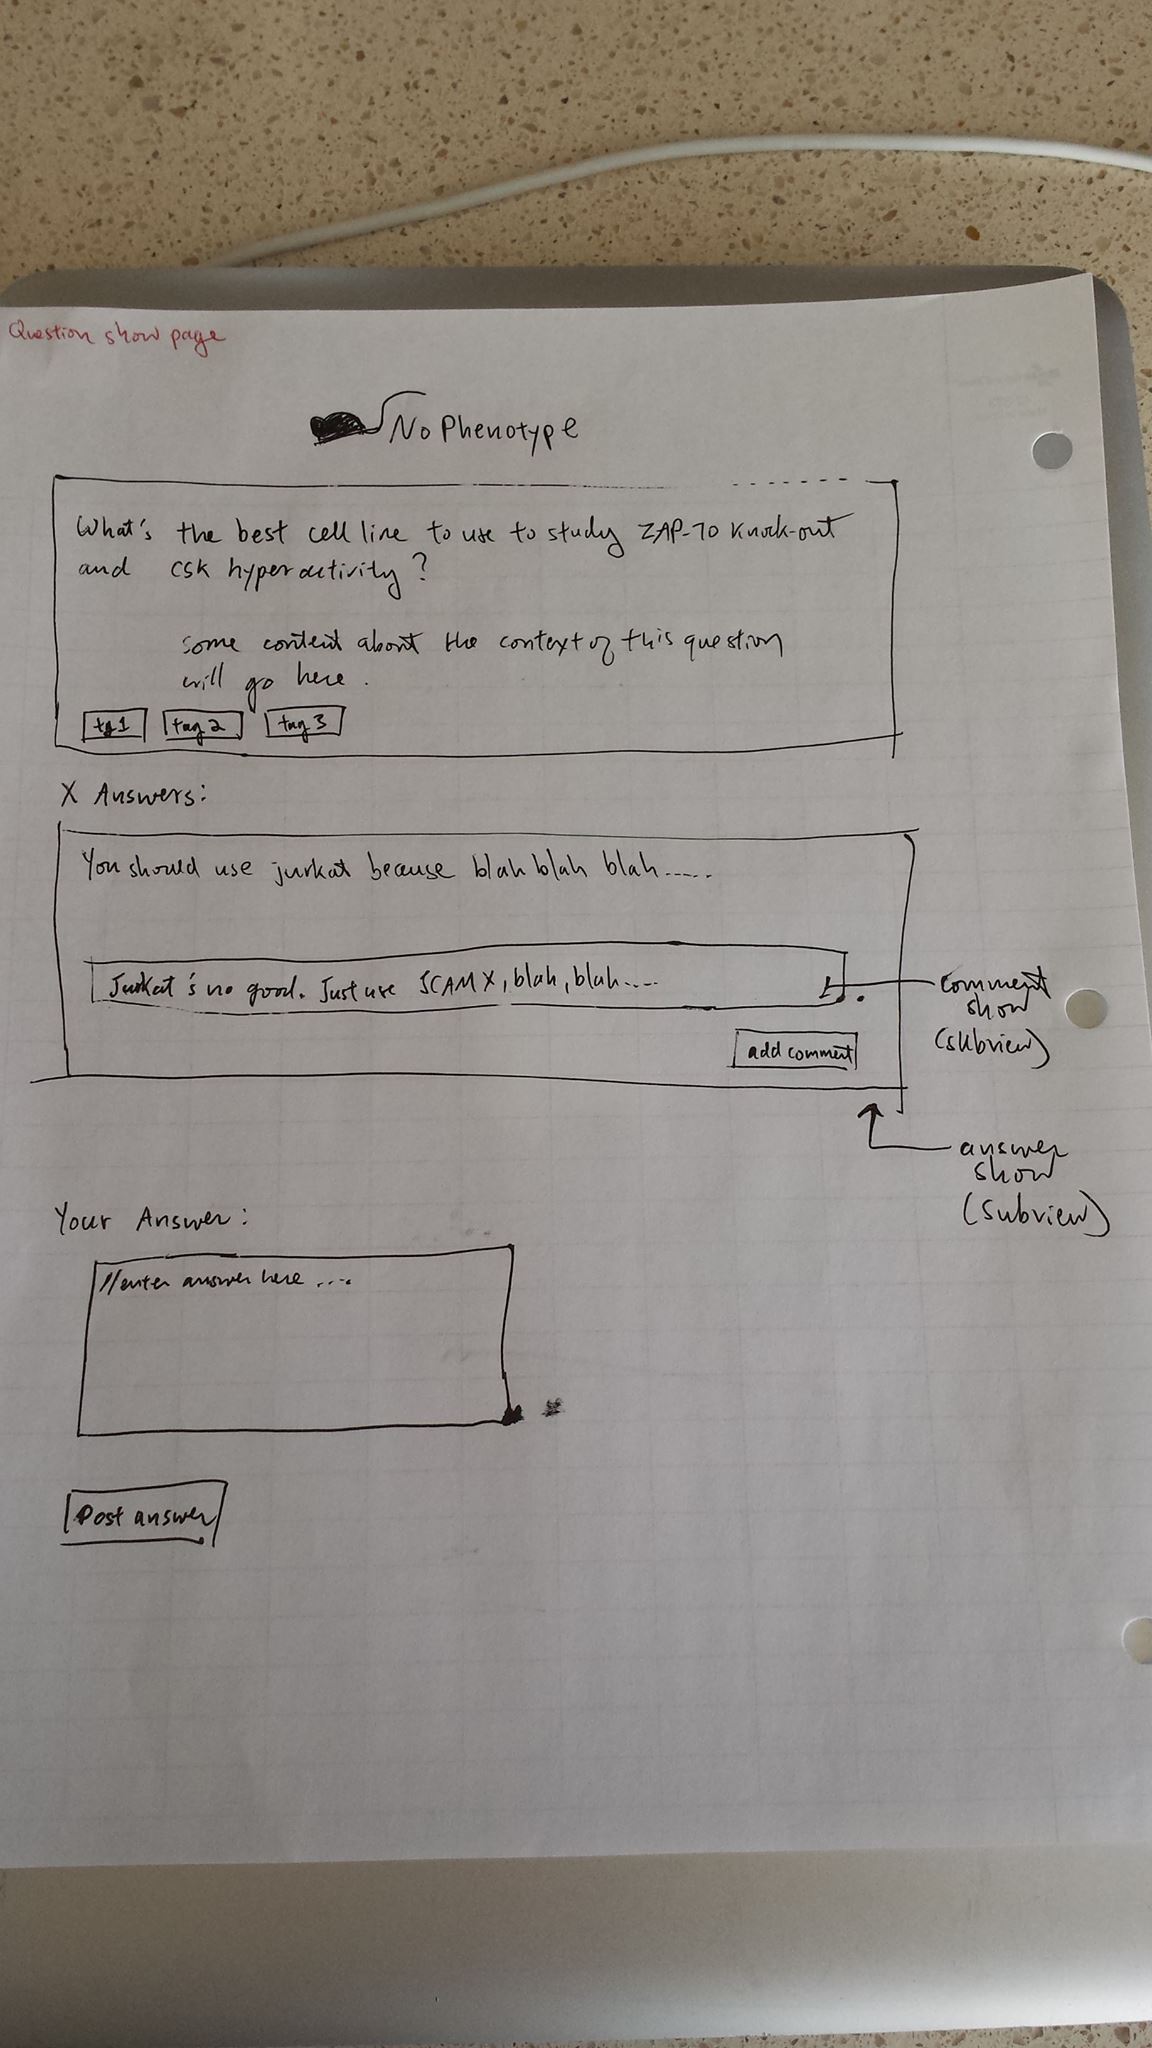 Question show page
No Phenotype
What's the best cell line to use to study ZAP-70 knock-out
and csk hyperactivity?
some content about the context of this question
will go here.
tg1 tag2 tag3
X Answers:
You should use jurkat because blah blah blah.....
Jurkat's no good. Just use JCAMX, blah, blah....
comment
show
(subview)
add comment
answer
show
(subview)
Your Answer:
//enter answer here ....
Post answer